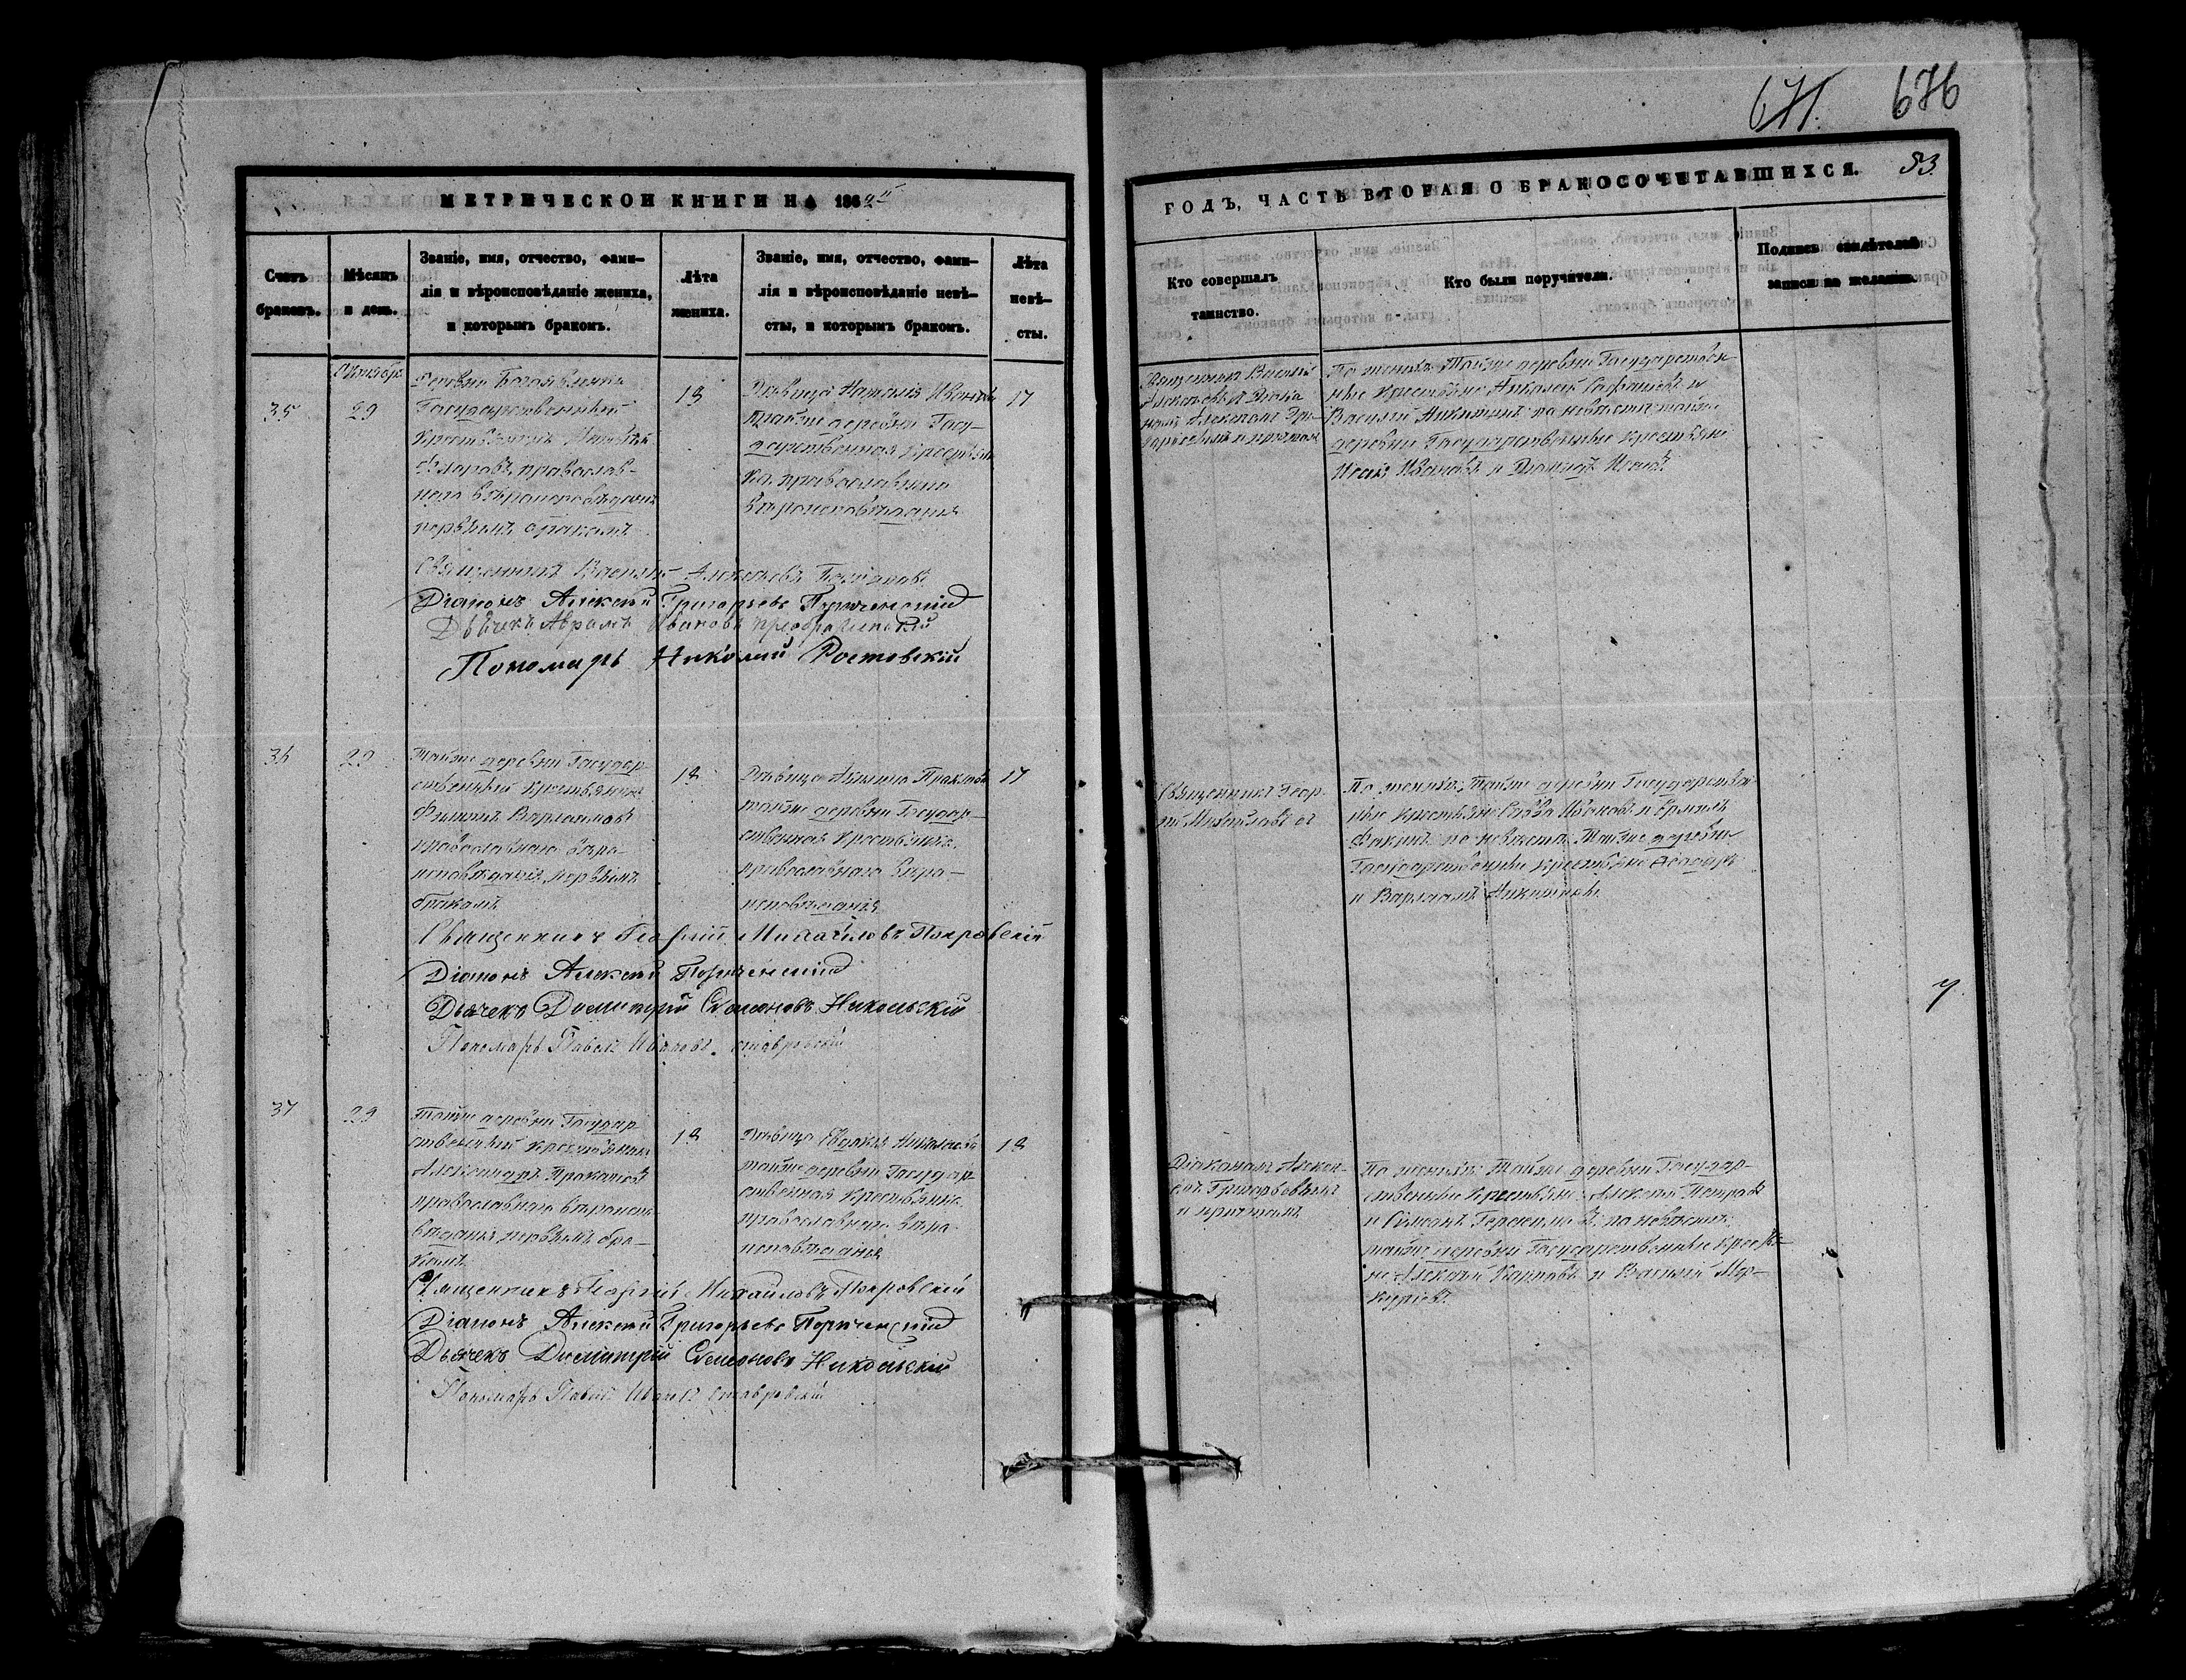 671. 676
МЕТРИЧЕСКОЙ КНИГИ НА 1864й
ГОДЪ, ЧАСТЬ ВТОРАЯ О БРАКОСОЧЕТАВШИХСЯ. 53
Счетъ браковъ.
Мѣсяцъ и день.
Званіе, имя, отчество, фами-
лія и вѣроисповѣданіе жениха,
и которымъ бракомъ.
Лѣта жениха.
Званіе, имя, отчество, фами-
лія и вѣроисповѣданіе невѣ-
сты, и которымъ бракомъ.
Лѣта невѣ-
сты.
Кто совершалъ
таинство.
Кто были поручители.
Подпись свидѣтелей
записи по желанію.
Октябр.
35
29
Деревни
Государственный
крестьянинъ
православ-
наго вѣроисповѣданія
первымъ бракомъ
18
Дѣвица Наталія
тойже деревни Госу-
дарственная крестьян
ка православнаго
вѣроисповѣданія
17
Священникъ Василій
Алексѣевъ
Алексѣемъ Гри-
и причтомъ
По женихѣ: тойже деревни Государствен-
ные крестьяне Николай и
Василій Никитинъ; по невѣстѣ: тойже
деревни Государственные крестьяне
Исаія Ивановъ и Исаевъ
Священникъ Василій Алексѣевъ
Діаконъ Алексѣй Григорьевъ
Дьячекъ Аврамъ Ивановъ Преображенскій
Пономарь Николай Ростовскій
36
29
Тойже деревни Государ-
ственный крестьянинъ
Варлаамовъ
православнаго вѣро-
исповѣданія, первымъ
бракомъ
18
Дѣвица
тойже деревни Государ-
ственная крестьянка
православнаго вѣро-
исповѣданія
17
Священникъ Геор-
гій Михайловъ съ
По женихѣ: тойже деревни Государствен-
ные крестьяне Савва Ивановъ и
по невѣстѣ: тойже деревни
Государственные крестьяне
и Варлаамъ Никитинъ
Священникъ Георгій Михайловъ Покровскій
Діаконъ Алексѣй
Дьячекъ Димитрій Семеновъ Никольскій
Пономарь Павелъ Ивановъ Ставровскій
37
29
Тойже деревни Государ-
ственный крестьянинъ
Александръ
православнаго вѣроиспо-
вѣданія, первымъ бра-
комъ
18
Дѣвица Евдокія
тойже деревни Государ-
ственная крестьянка
православнаго вѣро-
исповѣданія
18
Діакономъ Алексѣ-
емъ Григорьевымъ
и причтомъ
По женихѣ: тойже деревни Государ-
ственные крестьяне: Алексѣй Петровъ
и Симеонъ Герасимовъ; по невѣстѣ:
тойже деревни Государственные крестья-
не Алексѣй Карповъ и Василій Мер-
куріевъ.
Священникъ Георгій Михайловъ Покровскій
Діаконъ Алексѣй Григорьевъ
Дьячекъ Димитрій Семеновъ Никольскій
Пономарь Павелъ Ивановъ Ставровскій